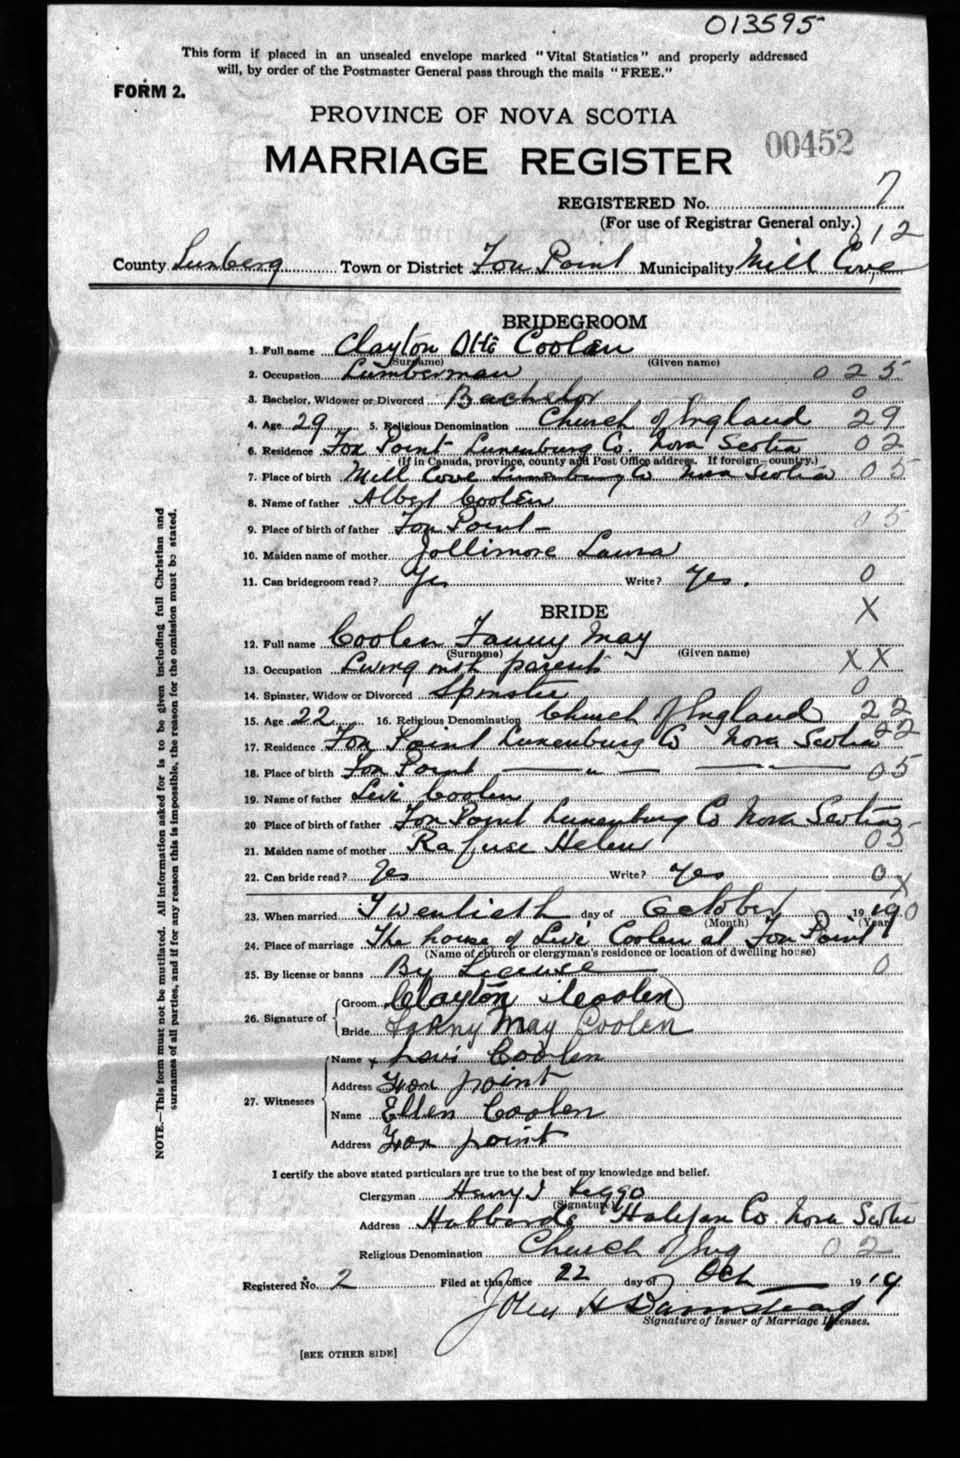 013595
This form if placed in an unsealed envelope marked "Vital Statistics" and properly addressed
will, by order of the Postmaster General pass through the mails "FREE."
FORM 2.
PROVINCE OF NOVA SCOTIA
00452
MARRIAGE REGISTER
REGISTERED No. 7
(For use of Registrar General only.)
12
County Lunberg Town or District Fox Point Municipality Mill Cove
BRIDEGROOM
1. Full name Clayton Otto Coolen
(Surname) (Given name)
2. Occupation Lumberman 025
3. Bachelor, Widower or Divorced Bachelor 0
4. Age 29 5. Religious Denomination Church of England 29
6. Residence Fox Point Lunenburg Co. Nova Scotia 02
(If in Canada, province, county and Post Office address. If foreign—country.)
7. Place of birth Mill Cove Lunenburg Co Nova Scotia 05
8. Name of father Albert Coolen
9. Place of birth of father Fox Point — 05
10. Maiden name of mother Jollimore Laura
11. Can bridegroom read? Yes Write? Yes. 0
BRIDE X
12. Full name Coolen Fanny May
(Surname) (Given name)
13. Occupation Living with parents XX
14. Spinster, Widow or Divorced Spinster 0
15. Age 22 16. Religious Denomination Church of England 22
17. Residence Fox Point Lunenburg Co Nova Scotia 22
18. Place of birth Fox Point — " — — — 05
19. Name of father Levi Coolen
20 Place of birth of father Fox Point Lunenburg Co Nova Scotia
21. Maiden name of mother Rafuse Helen 05
22. Can bride read? Yes Write? Yes 0
X
23. When married Twentieth day of October 19 19 0
(Month) (Year)
24. Place of marriage The house of Levi Coolen at Fox Point
(Name of church or clergyman's residence or location of dwelling house)
25. By license or banns By License 0
26. Signature of Groom Clayton Coolen
Bride Fanny May Coolen
27. Witnesses Name x Levi Coolen
Address Fox point
Name Ellen Coolen
Address Fox point
I certify the above stated particulars are true to the best of my knowledge and belief.
Clergyman Henry J Leggo
(Signature)
Address Hubbards Halifax Co. Nova Scotia
Religious Denomination Church of Eng 02
Registered No. 2 Filed at this office 22 day of Oct 19 19
John H Barnstead
Signature of Issuer of Marriage Licenses.
[SEE OTHER SIDE]
NOTE.—This form must not be mutilated. All information asked for is to be given including full Christian and
surnames of all parties, and if for any reason this is impossible, the reason for the omission must be stated.